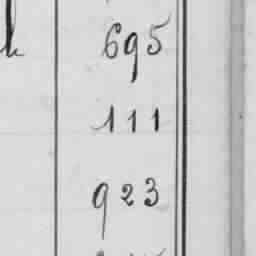 695
111
923